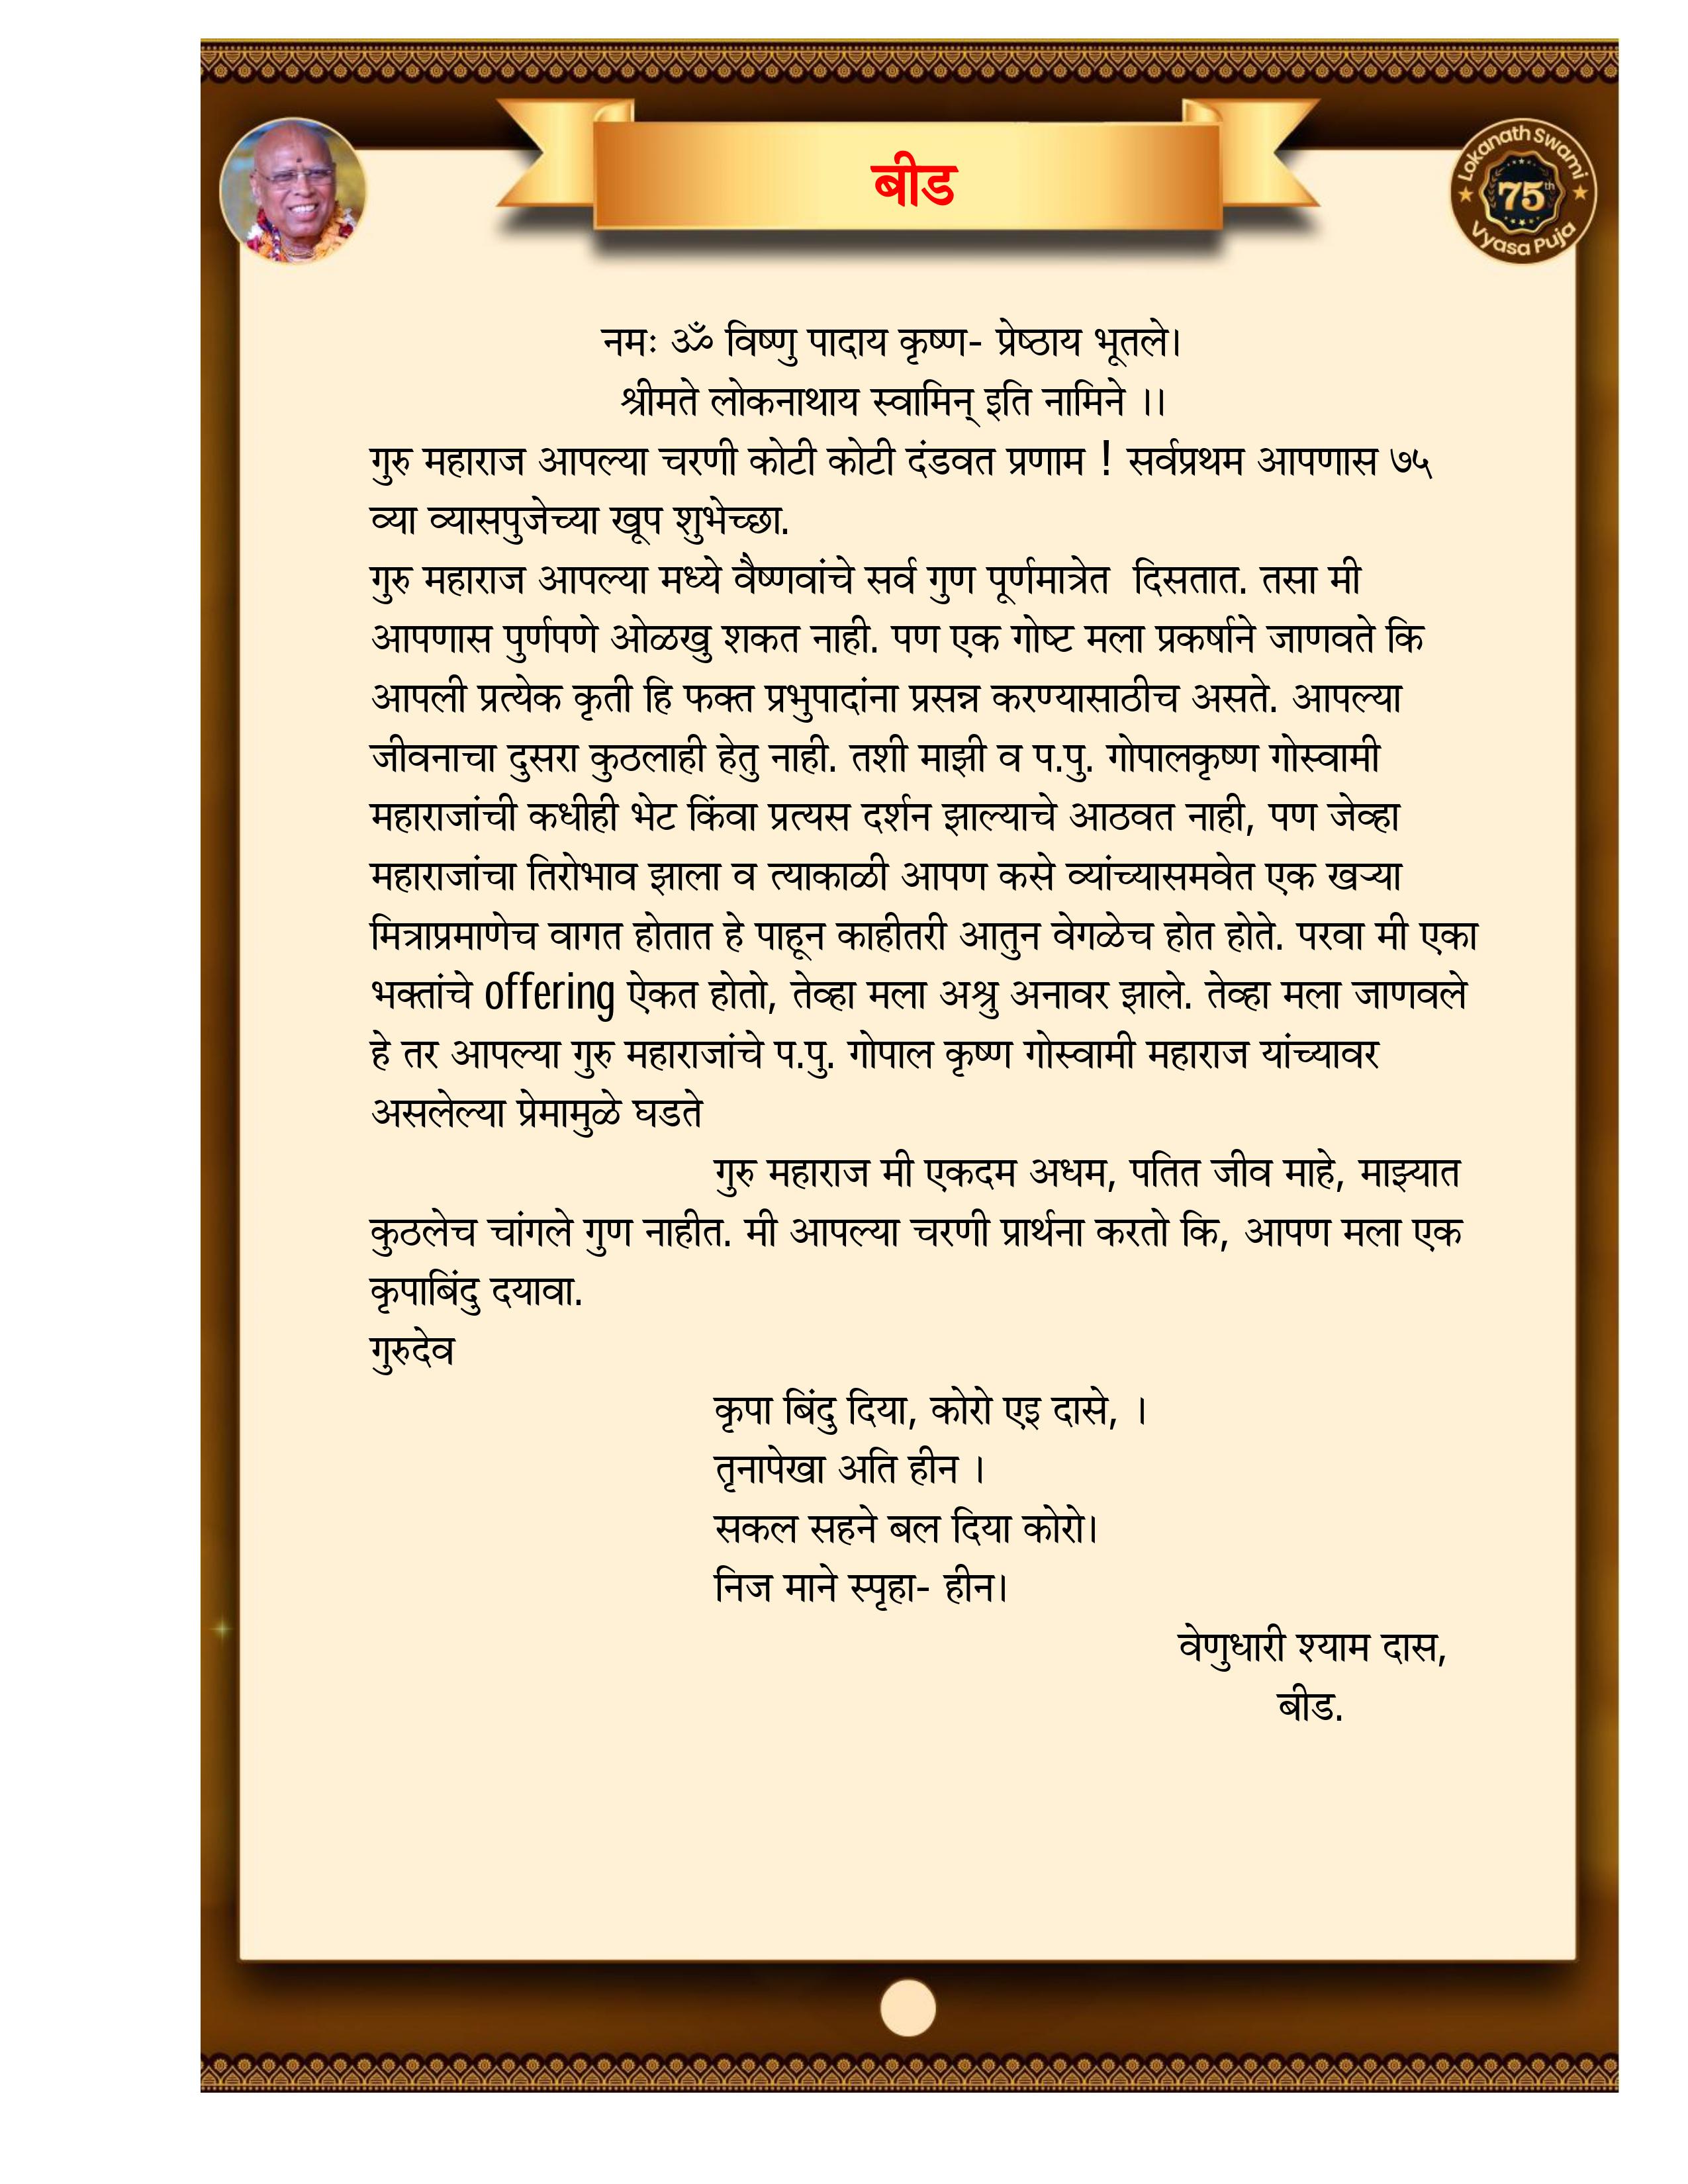 बीड
Lokanath Swami
75th
Vyasa Puja
नमः ॐ विष्णु पादाय कृष्ण- प्रेष्ठाय भूतले।
श्रीमते लोकनाथाय स्वामिन् इति नामिने ।।
गुरु महाराज आपल्या चरणी कोटी कोटी दंडवत प्रणाम ! सर्वप्रथम आपणास ७५
व्या व्यासपुजेच्या खूप शुभेच्छा.
गुरु महाराज आपल्या मध्ये वैष्णवांचे सर्व गुण पूर्णमात्रेत दिसतात. तसा मी
आपणास पुर्णपणे ओळखु शकत नाही. पण एक गोष्ट मला प्रकर्षाने जाणवते कि
आपली प्रत्येक कृती हि फक्त प्रभुपादांना प्रसन्न करण्यासाठीच असते. आपल्या
जीवनाचा दुसरा कुठलाही हेतु नाही. तशी माझी व प.पु. गोपालकृष्ण गोस्वामी
महाराजांची कधीही भेट किंवा प्रत्यस दर्शन झाल्याचे आठवत नाही, पण जेव्हा
महाराजांचा तिरोभाव झाला व त्याकाळी आपण कसे व्यांच्यासमवेत एक खऱ्या
मित्राप्रमाणेच वागत होतात हे पाहून काहीतरी आतुन वेगळेच होत होते. परवा मी एका
भक्तांचे offering ऐकत होतो, तेव्हा मला अश्रु अनावर झाले. तेव्हा मला जाणवले
हे तर आपल्या गुरु महाराजांचे प.पु. गोपाल कृष्ण गोस्वामी महाराज यांच्यावर
असलेल्या प्रेमामुळे घडते
गुरु महाराज मी एकदम अधम, पतित जीव माहे, माझ्यात
कुठलेच चांगले गुण नाहीत. मी आपल्या चरणी प्रार्थना करतो कि, आपण मला एक
कृपाबिंदु दयावा.
गुरुदेव
कृपा बिंदु दिया, कोरो एइ दासे, ।
तृनापेखा अति हीन ।
सकल सहने बल दिया कोरो।
निज माने स्पृहा- हीन।
वेणुधारी श्याम दास,
बीड.